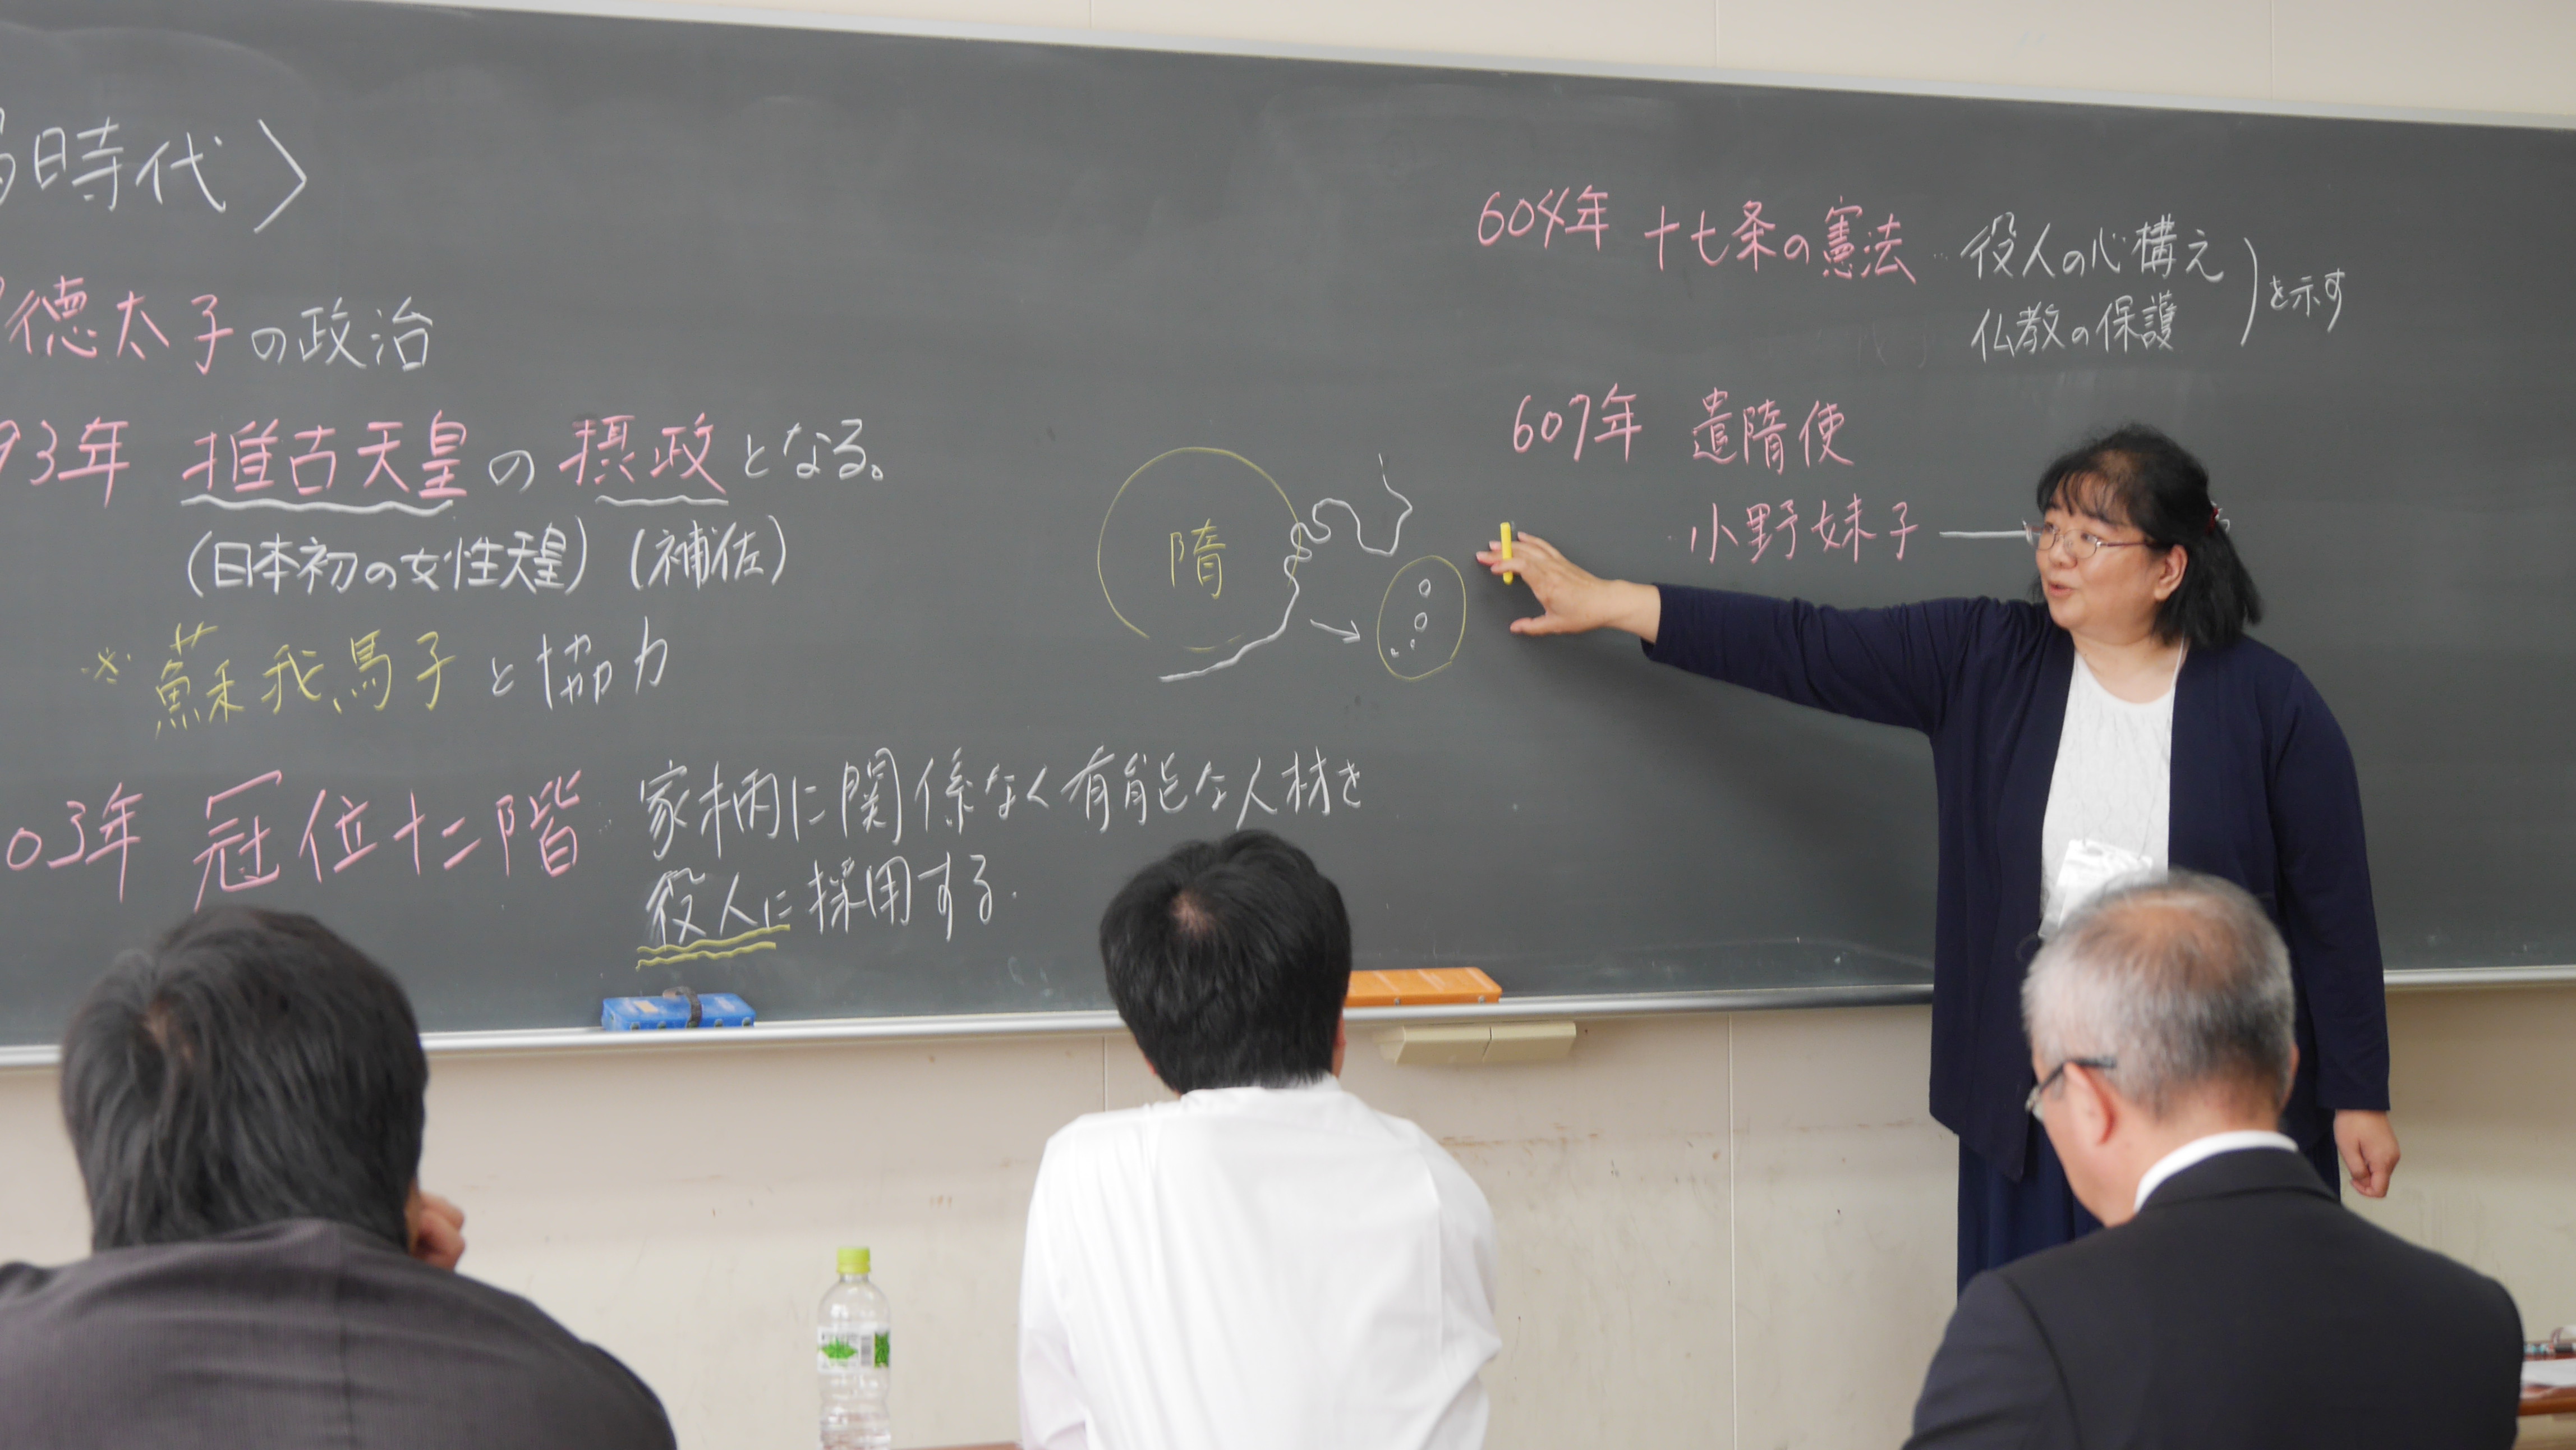 時代〉
徳太子の政治
93年 推古天皇の摂政となる。
(日本初の女性天皇) (補佐)
※蘇我馬子と協力
03年 冠位十二階 家柄に関係なく有能な人材を
役人に採用する.
隋
604年 十七条の憲法 … 役人の心構え
仏教の保護
を示す
607年 遣隋使
小野妹子